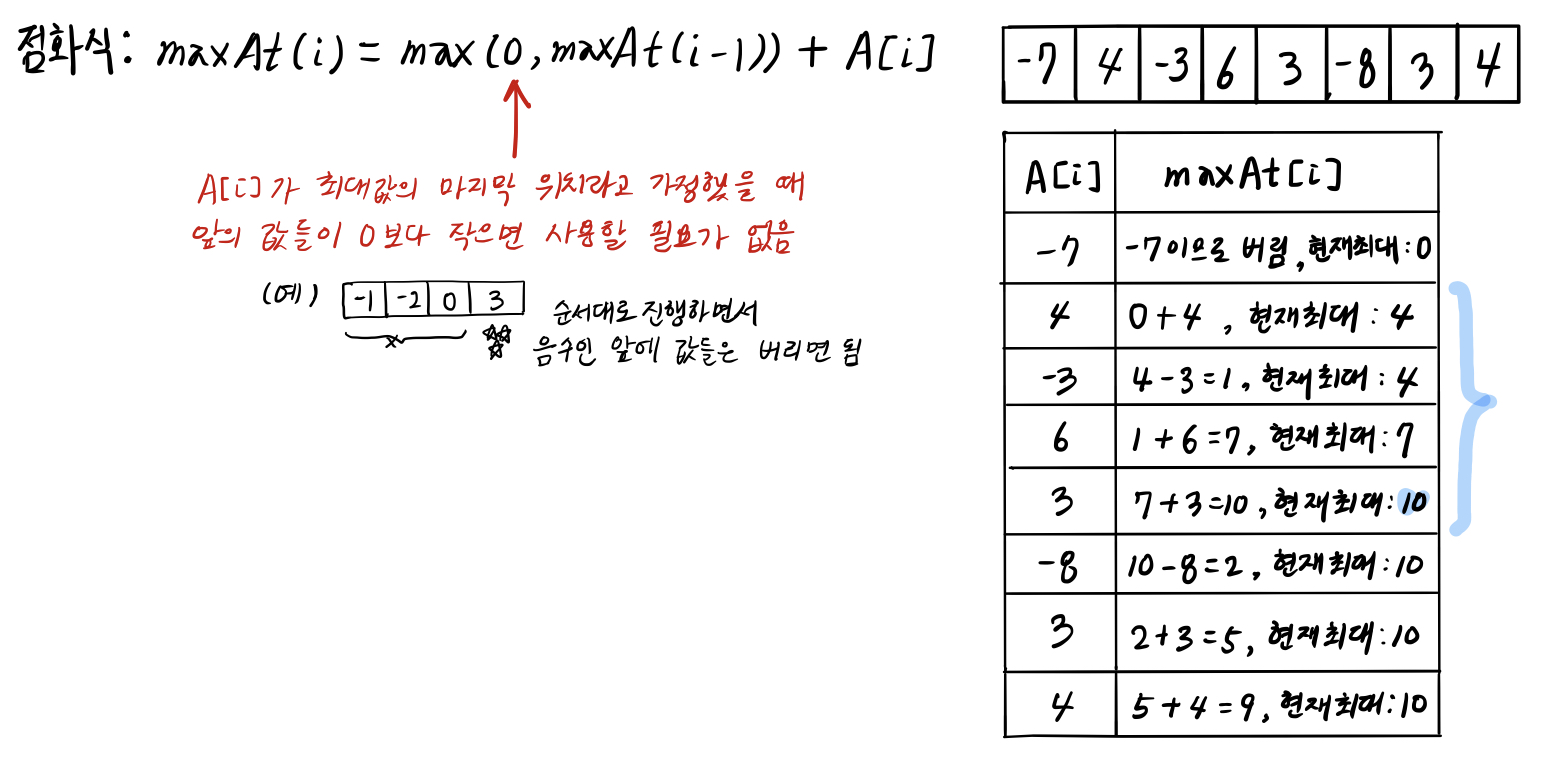 점화식: maxAt(i) = max(0, maxAt(i-1)) + A[i]
A[i]가 최대값의 마지막 위치라고 가정했을 때
앞의 값들이 0보다 작으면 사용할 필요가 없음
(예) -1 -2 0 3
순서대로 진행하면서
음수인 앞에 값들은 버리면 됨
-7 4 -3 6 3 -8 3 4
A[i] maxAt[i]
-7 -7이므로 버림, 현재최대: 0
4 0+4, 현재최대: 4
-3 4-3=1, 현재최대: 4
6 1+6=7, 현재최대: 7
3 7+3=10, 현재최대: 10
-8 10-8=2, 현재최대: 10
3 2+3=5, 현재최대: 10
4 5+4=9, 현재최대: 10